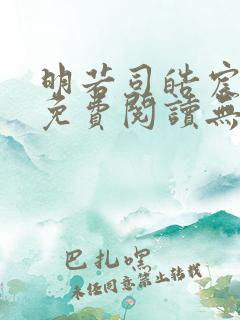 明若司皓宸
免費閱讀無
巴扎嘿
未经同意禁止转载